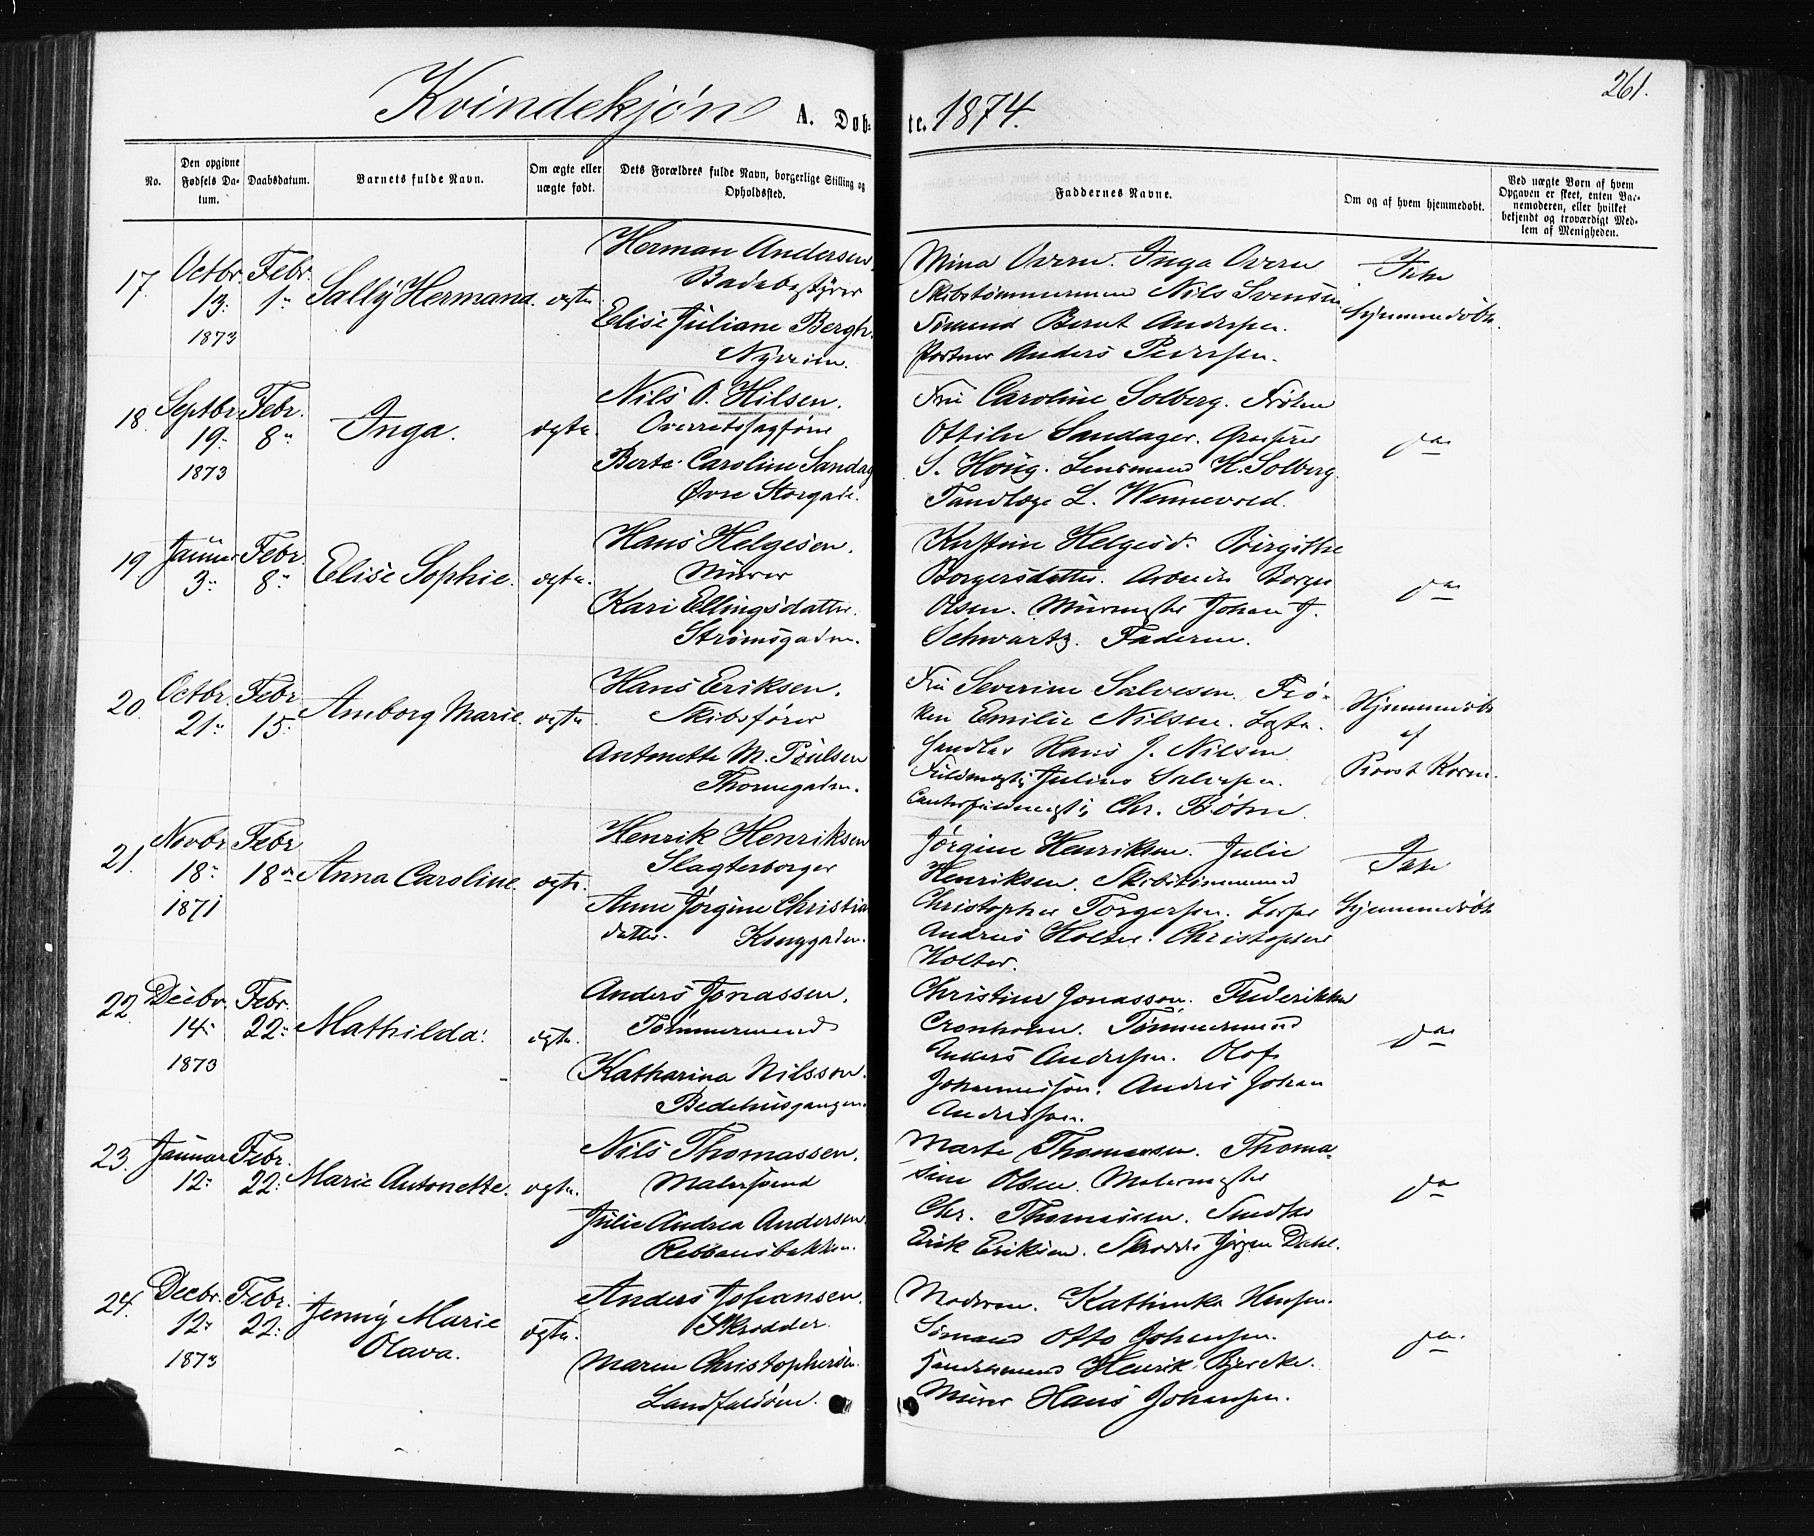 261.
Kvindekjøn A. Døb- te. 1874.
No.
Den opgivne Fødsels Da- tum.
Daabsdatum.
Barnets fulde Navn.
Om ægte eller uægte født.
Dets Forældres fulde Navn, borgerlige Stilling og Opholdssted.
Faddernes Navne.
Om og af hvem hjemmedøbt.
Ved uægte Børn af hvem Opgaven er skeet, enten Bar- nemoderen, eller hvilket bekjendt og troværdigt Med- lem af Menigheden.
17. Octbr. 13. 1873
Febr. 1"
Sally Hermana.
ægte.
Herman Andersen.
Badebestyrer
Elise Juliane Bergh.
Nyveien.
Mina Overn. Inga Overn
Skibstømmermand Nils Svensen
Sømand Bernt Andersen.
Portner Anders Pedersen.
Ikke
hjemmedøbt.
18. Septbr. 19. 1873
Febr. 8"
Inga.
ægte.
Nils O. Hilsen.
Overretssagfører
Berte Caroline Sandag
Øvre Storgade.
Fru Caroline Solberg. Frøken
Ottilie Sandager.
S. Houg. Lensmand K. Solberg.
Tandlæge L. Wennevold.
do
19. Januar 3"
Febr. 8"
Elise Sophie.
ægte.
Hans Helgesen.
Murer
Kari Ellingsdatter.
Strømsgaden.
Kirstine Helgesd. Birgitte
Borgersdatter. Arbeider Borger
Olsen. Murmester Johan J.
Schwartz. Faderen.
do
20. Octbr. 21"
Febr. 15.
Amborg Marie.
ægte.
Hans Eriksen.
Skibsfører
Antonette M. Poulsen
Thornegaden.
Fru Severine Salvesen. Frø-
ken Emilie Nilsen.
handler Hans J. Nilsen
Fuldmægtig Julius Salvesen.
Chr. Bøhn.
Hjemmedøbt
af
Provst Koren.
21. Novbr. 18" 1871
Febr. 18de
Anna Caroline.
ægte.
Henrik Henriksen
Slagterborger
Anne Jørgine Christian
datter. Konggaden.
Jørgine Henriksen. Julie
Henriksen. Skibstømmermand
Christopher Torgersen.
Andreas Holter. Christopher
Holter.
Ikke
hjemmedøbt
22. Decbr. 14. 1873
Febr. 22"
Mathilda.
ægte.
Anders Jonassen.
Tømmermand
Katharina Nilsson.
Bedehusgangen.
Christine Jonasson. Frederikke
Cronholm. Tømmermænd
Anders Andersen. Olof
Johannesson. Anders Johan
Andersson.
do
23. Januar 12"
Febr. 22"
Marie Antonette.
ægte.
Nils Thomassen.
Malersvend
Julie Andrea Andersen.
Rebbansbakken.
Marte Thomassen. Thoma-
sine Olsen. Malermester
Chr. Thomassen. Smed
Erik Eriksen. Skrædder Jørgen Dahl.
do
24. Decbr. 12" 1873
Febr. 22"
Jenny Marie
Olava.
ægte.
Anders Johansen.
Skrædder.
Maren Christophersen.
Landfaldøen.
Moderen. Kathinka Hansen.
Sømand Otto Johansen.
Handelsmand Henrik Bjercke.
Murer Hans Johansen.
do